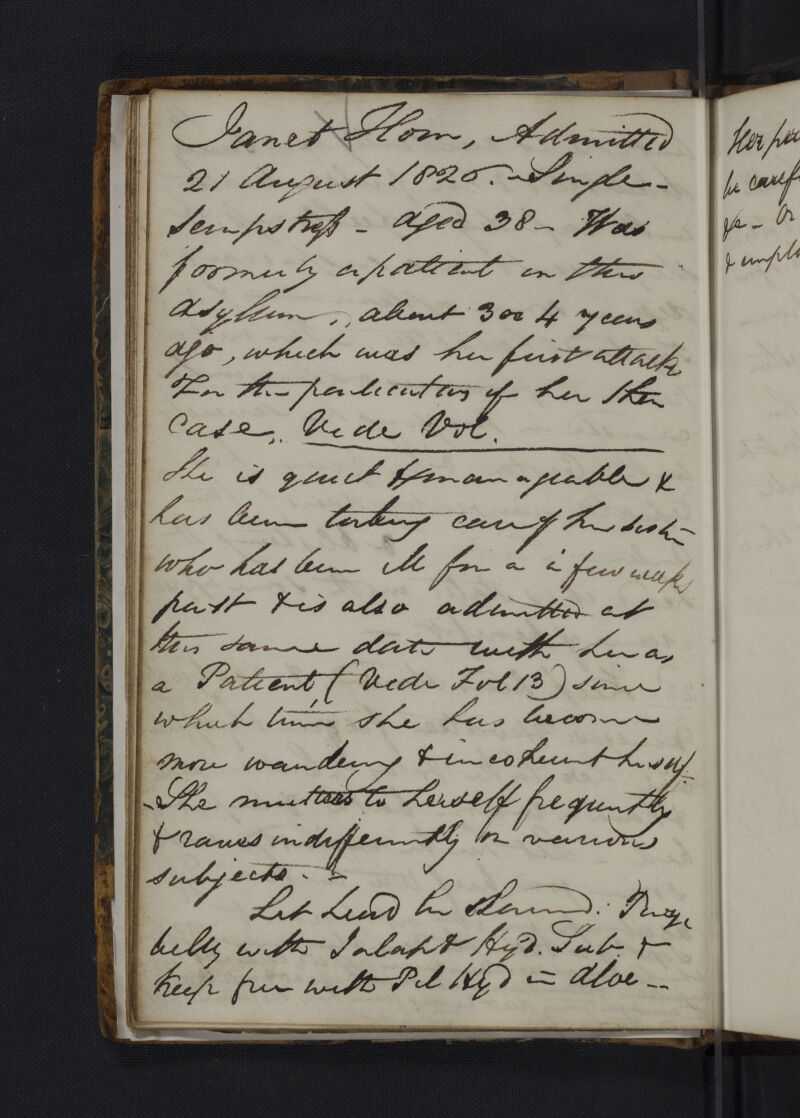 Janet Hom, Admitted
21 August 1826. - Single -
Sempstress - aged 38 - Was
formerly a patient in this
asylum, about 3 or 4 years
ago, which was her first attack
For the particulars of her then
case, Vide Vol.
She is quiet & manageable &
has been taking care of her sister
who has been ill for a few weeks
past & is also admitted at
this same date with her as
a Patient, (Vide Fol 13) since
which time she has become
more wandering & incoherent herself.
- She mutters to herself frequently
& raves indifferently on various
subjects. -
Let head be shaved. Purge
belly with Jalap & Hyd. Sub. &
keep free with Pil Hyd = Aloe --
Her
be
&